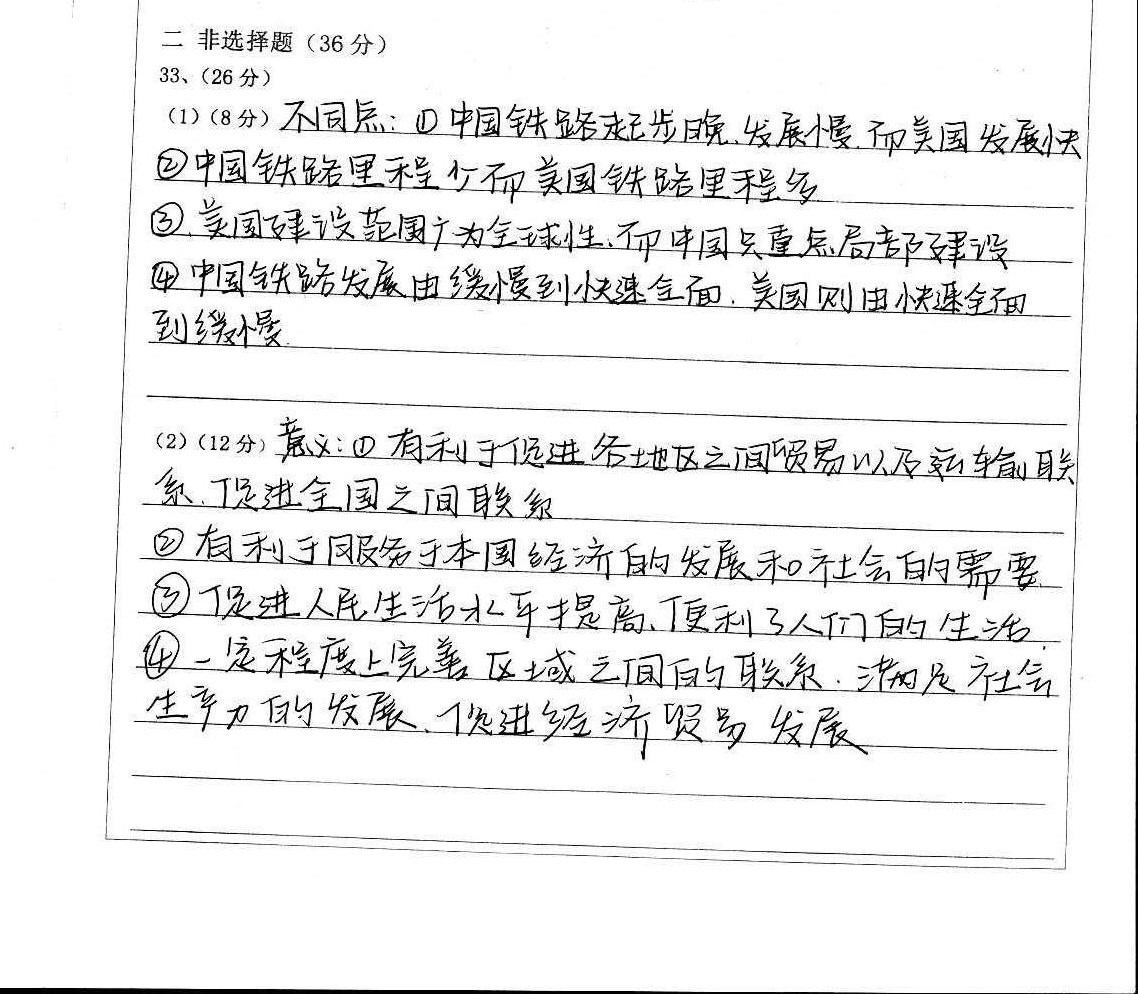 二 非选择题（36分）
33、（26分）
（1）（8分）不同点：①中国铁路起步晚、发展慢.而美国发展快
②中国铁路里程少而美国铁路里程多
③.美国建设范围广为全球性、而中国只重点局部建设
④中国铁路发展由缓慢到快速全面.美国则由快速全面
到缓慢.
（2）（12分）意义：①有利于促进各地区之间贸易以及运输联
系.促进全国之间联系
②有利于服务于本国经济的发展和社会的需要.
③促进人民生活水平提高、便利了人们的生活.
④一定程度上完善区域之间的联系.满足社会
生产力的发展、促进经济贸易发展